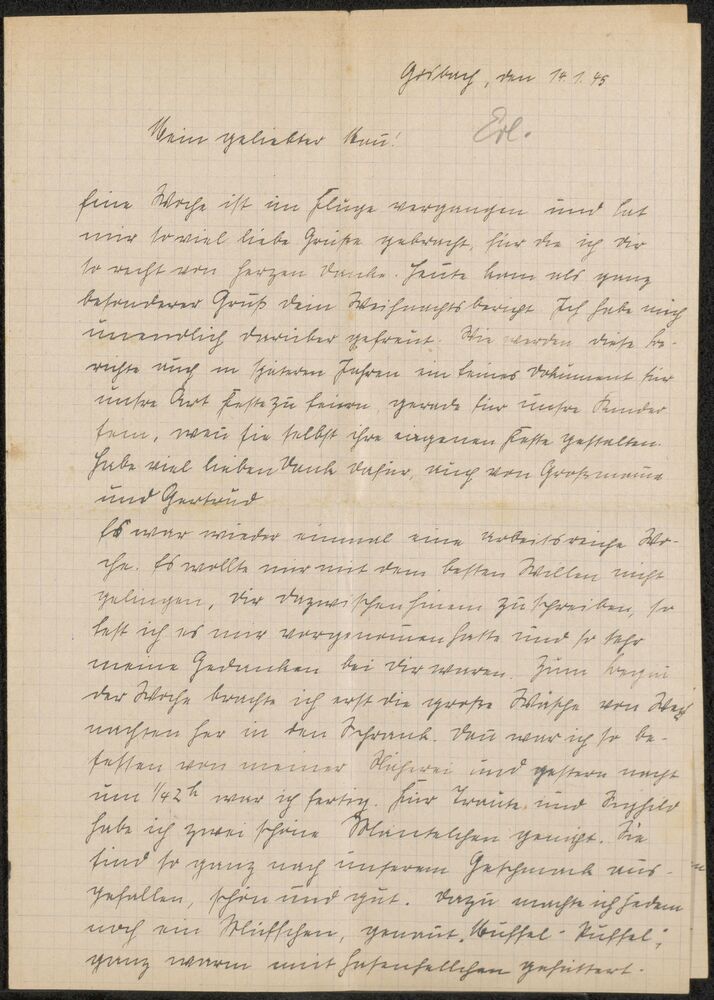 Gosbach, den 14.1.45
Erl.
Mein geliebter Mañ!
Eine Woche ist im Fluge vergangen und hat
mir so viel liebe Grüße gebracht, für die ich Dir
so recht von Herzen danke. Heute kam als ganz
besonderer Gruß dein Weihnachtsbericht. Ich habe mich
unendlich darüber gefreut. Wie werden diese Be-
richte auch in späteren Jahren ein feines Dokument für
unsre Art Feste zu feiern, gerade für unsre Kinder
sein, weñ sie selbst ihre eigenen Feste gestalten.
Habe viel lieben Dank dafür, auch von Großmama
und Gertrud
Es war wieder einmal eine arbeitsreiche Wo-
che. Es wollte mir mit dem besten Willen nicht
gelingen, Dir dazwischenhinein zu schreiben, so
fest ich es mir vorgenom̄en hatte und so sehr
meine Gedanken bei Dir waren. Zum Begiñ
der Woche brachte ich erst die große Wäsche von Weih
nachten her in den Schrank. Dañ war ich so be-
sessen von meiner Näherei und gestern nacht
um 1/42 h war ich fertig. Für Traute und Sieghild
habe ich zwei schöne Mäntelchen genäht. Sie
sind so ganz nach unserem Geschmack aus-
gefallen, schön und gut. Dazu machte ich jedem
noch ein Müffchen, genañt "Muffel-Puffel",
ganz warm mit Hasenfellchen gefüttert.